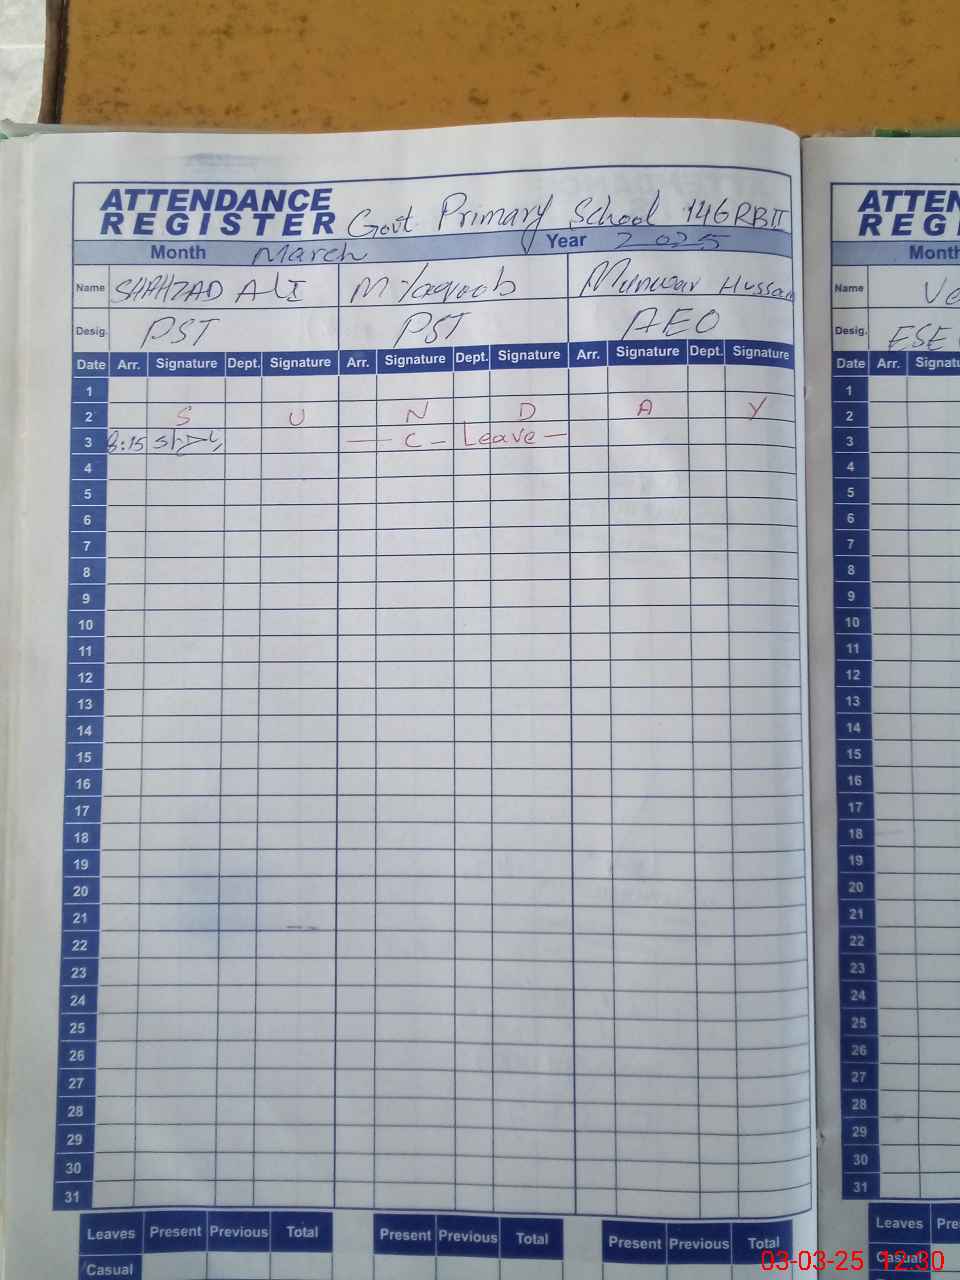 ATTENDANCE REGISTER Govt Primary School 146 RB II
Month March Year 2025
Name SHAHZAD ALI M Yaqoob Munwar Hussan
Desig. PST PST AEO
Date Arr. Signature Dept. Signature Arr. Signature Dept. Signature Arr. Signature Dept. Signature
1
2 S U N D A Y
3 8:15 C - Leave -
4
5
6
7
8
9
10
11
12
13
14
15
16
17
18
19
20
21
22
23
24
25
26
27
28
29
30
31
Leaves Present Previous Total Present Previous Total Present Previous Total
Casual
ATTEN
REG
Month
Name
Desig. ESE
Date Arr. Signatu
1
2
3
4
5
6
7
8
9
10
11
12
13
14
15
16
17
18
19
20
21
22
23
24
25
26
27
28
29
30
31
Leaves Pre
Casual
03-03-25 12:30